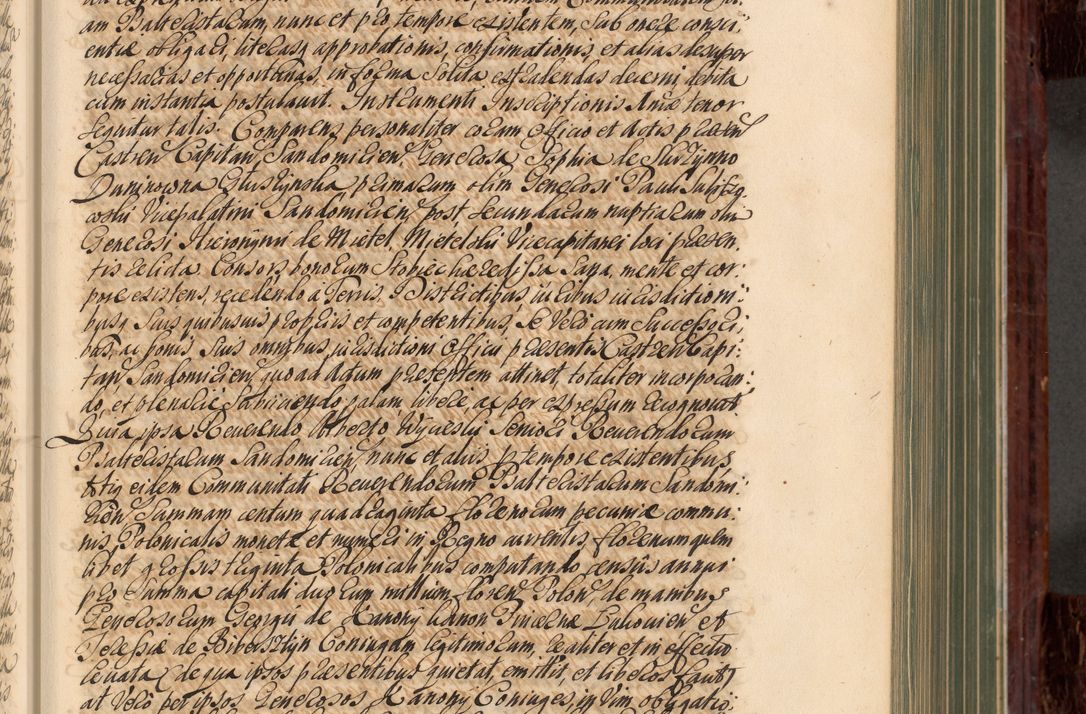 am Psalteristarum, nunc et pro tempore existentem, sub onere consci:
entiæ obligari, literasq approbationis, confirmationis, et alias desuper
necessarias et opportunas, in forma solita extradendas decerni debita
cum instantia postulavit. Instrumenti Inscriptionis Anæ tenor
sequitur talis. Comparens personaliter coram Officio et Actis præsen
Castren Capitan, Sandomirien, Generosa Sophia de Skrzynno
Duninowna Głuszynska, primarum olim Generosi Pauli
Vicepalatini Sandomirien, post secundarum nuptiarum olim
Generosi Hieronymi de Mietel, Mietelski Vicecapitanei loci præsen,
tis relicta Consors, bonorum Stobiec hæredissa Sana, mente et cor:
pore existens, recedendo a Terris, Districtibus, iuribus iurisdictioni:
busq suis quibusvis propriis et competentibus, se vero cum Successori:
bus, ac bonis suis omnibus, iurisdictioni Officii præsentis Castren Capi:
tan Sandomirien, quo ad Actum præsentem attinet, totaliter incorporan:
do, et plenarie subiiciendo, palam libere, ac per expressum recognovit
Quia ipsa Reverendo Alberto Seniori Reverendorum
Psalteristarum Sandomirien, nunc et aliis p tempore existentibus
totiq eidem Communitati Reverendorum Psalteristarum Sandomi:
rien Summam centum quadraginta florenorum pecuniæ commu:
nis Polonicalis monetæ et numeri in Regno currentis, florenum quem
libet grossis triginta Polonicalibus computando census annui
pro Summa capitali duorum millium floren Polon, de manibus
Generosorum Georgii de Kanony Pincernæ et
Teressiæ de Biberszteyn Coniugum legitimorum, realiter et in effectu
levata (de qua ipsos præsentibus quietat, emittit, et liberos facit)
at vero per ipsos Generosos Kanony Coniuges, in vim obligatio: